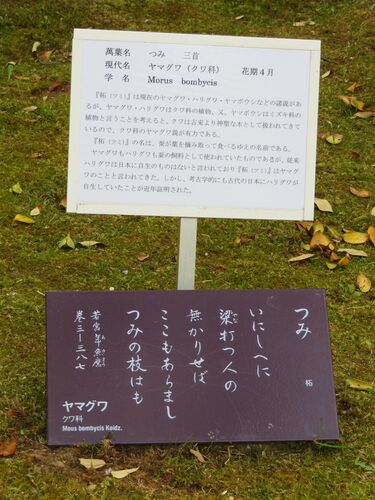 萬葉名　つみ　三首
現代名　ヤマグワ（クワ科）　花期４月
学　名　Morus bombycis
『柘（ツミ）』は現在のヤマグワ・ハリグワ・ヤマボウシなどの諸説があ
るが、ヤマグワ・ハリグワはクワ科の植物、又、ヤマボウシはミズキ科の
植物と言うことを考えると、クワは古来より神聖な木として扱われてきて
いるので、クワ科のヤマグワ説が有力である。
『柘（ツミ）』の名は、蚕が葉を摘み取って食べるゆえの名前である。
ヤマグワもハリグワも蚕の飼料として使われていたものであるが、従来
ハリグワは日本に自生のものはないと言われており『柘（ツミ）』はヤマグ
ワのことと言われてきた。しかし、考古学的にも古代の日本にハリグワが
自生していたことが近年証明された。
つみ　柘
いにしへに
梁打つ人の
無かりせば
ここもあらまし
つみの枝はも
若宮年魚麿
巻三―三八七
ヤマグワ
クワ科
Mous bombycis Koidz.